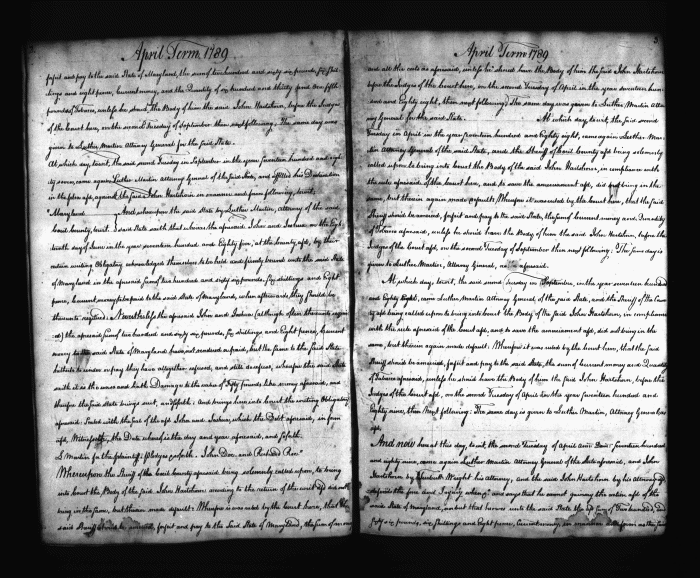 April Term 1789
forfeit and pay to the said State of Maryland, the sum of ten hundred and sixty six pounds, six shil-
lings and eight pence, current money, and the Quantity of six hundred and thirty and
pounds of Tobacco, unless he should the Body of him the said John Hartshorn, before the Judges
of the Court here, on the second Tuesday of September then next following. The same day was
given to Luther Martin Attorney General for the said State.
At which day, to wit, the said second Tuesday in September in the year seventeen hundred and eigh-
ty seven, came again Luther Martin Attorney General of the said State, and his Declaration
in the plea afd, against the said John Hartshorn in manner and form following, to wit,
Maryland And whereupon the said State by Luther Martin, Attorney of the said
County, to wit, said State saith that whereas the aforesaid John and Joshua, on the Eigh-
teenth day of June in the year seventeen hundred and Eighty five, at the County afd, by their
certain writing Obligatory acknowledged themselves to be held and firmly bound unto the said State
of Maryland in the aforesaid sum of ten hundred and sixty six pounds, Six shillings and Eight
pence, Current money to be paid to the said State of Maryland, when afterwards they should be
thereunto required: Nevertheless the aforesaid John and Joshua (although often thereunto requir-
:ed) the aforesaid sum of ten hundred and sixty six pounds, six shillings and Eight pence, Current
money to the said State of Maryland have not rendered or paid, but the same to the said State
hitherto to render or pay they have altogether refused, and still do refuse, wherefore the said State
saith it is the worse and hath Damage to the value of Fifty Pounds like money aforesaid, and
therefore the said State brings suit, and so forth: And brings here into Court the writing Obligatory
aforesaid, Sealed with the seal of the afd John and Joshua, which the Debt aforesaid, in form
afd, Witnesseth, the Date whereof is the day and year aforesaid, and so forth.
L. Martin for the plaintiff: Pledges and so forth. John Doe and Richard Roe
Whereupon the Sheriff of the County aforesaid being solemnly called upon, to bring
into Court the Body of the said John Hartshorn according to the return of the writ afd did not
bring in the same, but therein made default: Whereupon it was ruled by the Court here, that the
said Sheriff should be amerced, forfeit and pay to the said State of Maryland, the sum of
April Term 1789
and all the costs as aforesaid, unless he should have the Body of him the said John Hartshorn
before the Judges of the Court here, on the second Tuesday of April in the year seventeen hun-
dred and Eighty eight, then next following; The same day was given to Luther Martin Attor-
ney General for the said State. At which day to wit, the said second
Tuesday in April in the year seventeen hundred and Eighty eight, came again Luther Mar-
tin Attorney General of the said State, and the Sheriff of the County afd being solemnly
called upon to bring into Court the Body of the said John Hartshorn, in compliance with
the rule aforesaid of the Court here, and to save the amercement afd, did not bring in the
same, but therein again made default; Whereupon it was ruled by the Court here, that the said
Sheriff should be amerced, forfeit and pay to the said State, the sum of Current money and Quantity
of Tobacco aforesaid, unless he should have the Body of him the said John Hartshorn, before the
Judges of the Court afd, on the second Tuesday of September then next following; The same day is
given to Luther Martin, Attorney General, as aforesaid.
At which day, to wit, the said second Tuesday in September, in the year seventeen hundred
and Eighty Eight, came Luther Martin Attorney General of the said State, and the Sheriff of the Coun-
ty afd being called upon to bring into Court the Body of the said John Hartshorn, in compliance
with the rule aforesaid of the Court afd, and to save the amercement afd, did not bring in the
same, but therein again made default: Whereupon it was ruled by the Court here, that the said
Sheriff should be amerced, forfeit and pay to the said State, the sum of Current money and Quantity
of Tobacco aforesaid, unless he should have the Body of him the said John Hartshorn, before the
Judges of the Court afd, on the second Tuesday of April in the year seventeen hundred and
Eighty nine, then next following: The same day is given to Luther Martin, Attorney General as
afd.
And now here at this day, to wit, the second Tuesday of April Anno Dom: seventeen hundred
and eighty nine, came again Luther Martin Attorney General of the State aforesaid, and John
Hartshorn by Wright his attorney, and the said John Hartshorn by his Attorney afd
defends the force and Injury when &c and says that he cannot gainsay the action afd of the
State of Maryland, nor but that he owes unto the said State the sum of Ten hundred and
sixty six pounds, six shillings and Eight pence, Current money, in manner and form as the said